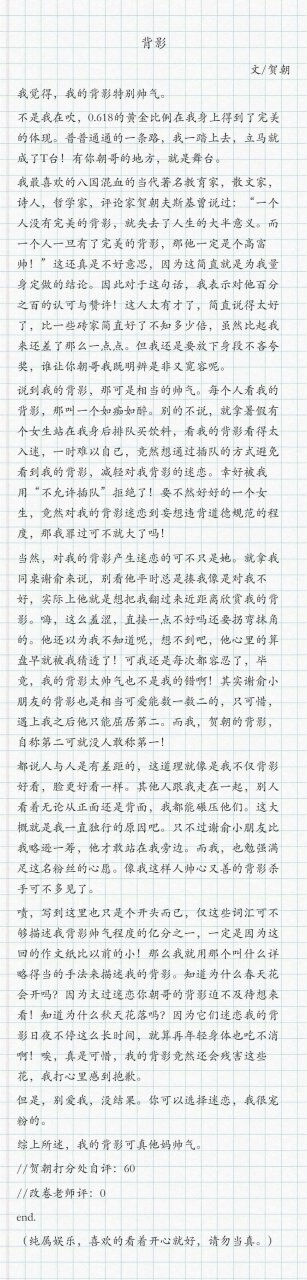 背影
文/贺朝
我觉得，我的背影特别帅气。
不是我在吹，0.618的黄金比例在我身上得到了完美
的体现。普普通通的一条路，我一踏上去，立马就
成了T台！有你朝哥的地方，就是舞台。
我最喜欢的八国混血的当代著名教育家，散文家，
诗人，哲学家，评论家贺朝夫斯基曾说过：“一个
人没有完美的背影，就失去了人生的大半意义。而
一个人一旦有了完美的背影，那他一定是个高富
帅！”这还真是不好意思，因为这简直就是为我量
身定做的结论。因此对于这句话，我表示对他百分
之百的认可与赞许！这人太有才了，简直说得太好
了，比一些砖家简直好了不知多少倍，虽然比起我
来还差了那么一点点。但我还是要放下身段不吝夸
奖，谁让你朝哥我既明辨是非又宽容呢。
说到我的背影，那可是相当的帅气。每个人看我的
背影，那叫一个如痴如醉。别的不说，就拿暑假有
个女生站在我身后排队买饮料，看我的背影看得太
入迷，一时难以自己，竟然想通过插队的方式避免
看到我的背影，减轻对我背影的迷恋。幸好被我
用“不允许插队”拒绝了！要不然好好的一个女
生，竟然对我的背影迷恋到妄想违背道德规范的程
度，那我罪过可不就大了吗！
当然，对我的背影产生迷恋的可不只是她。就拿我
同桌谢俞来说，别看他平时总是揍我像是对我不
好，实际上他就是想把我翻过来近距离欣赏我的背
影。嗨，这么羞涩，直接一点不好吗还要拐弯抹角
的。他还以为我不知道呢，想不到吧，他心里的算
盘早就被我猜透了！可我还是每次都容忍了，毕
竟，我的背影太帅气也不是我的错啊！其实谢俞小
朋友的背影也是相当可爱能数一数二的，只可惜，
遇上我之后他只能屈居第二。而我，贺朝的背影，
自称第二可就没人敢称第一！
都说人与人是有差距的，这道理就像是我不仅背影
好看，脸更好看一样。其他人跟我走在一起，别人
看着无论从正面还是背面，我都能碾压他们。这大
概就是我一直独行的原因吧。只不过谢俞小朋友比
我略逊一筹，他才敢站在我旁边。而我，也勉强满
足这名粉丝的心愿。像我这样人帅心又善的背影杀
手可不多见了。
啧，写到这里也只是个开头而已，仅这些词汇可不
够描述我背影帅气程度的亿分之一，一定是因为这
回的作文纸比以前的小！那么我就用那个叫什么详
略得当的手法来描述我的背影。知道为什么春天花
会开吗？因为太过迷恋你朝哥的背影迫不及待想来
看！知道为什么秋天花落吗？因为它们迷恋我的背
影日夜不停这么长时间，就算再年轻身体也吃不消
啊！唉，真是可惜，我的背影竟然还会残害这些
花，我打心里感到抱歉。
但是，别爱我，没结果。你可以选择迷恋，我很宠
粉的。
综上所述，我的背影可真他妈帅气。
//贺朝打分处自评：60
//改卷老师评：0
end.
（纯属娱乐，喜欢的看着开心就好，请勿当真。）